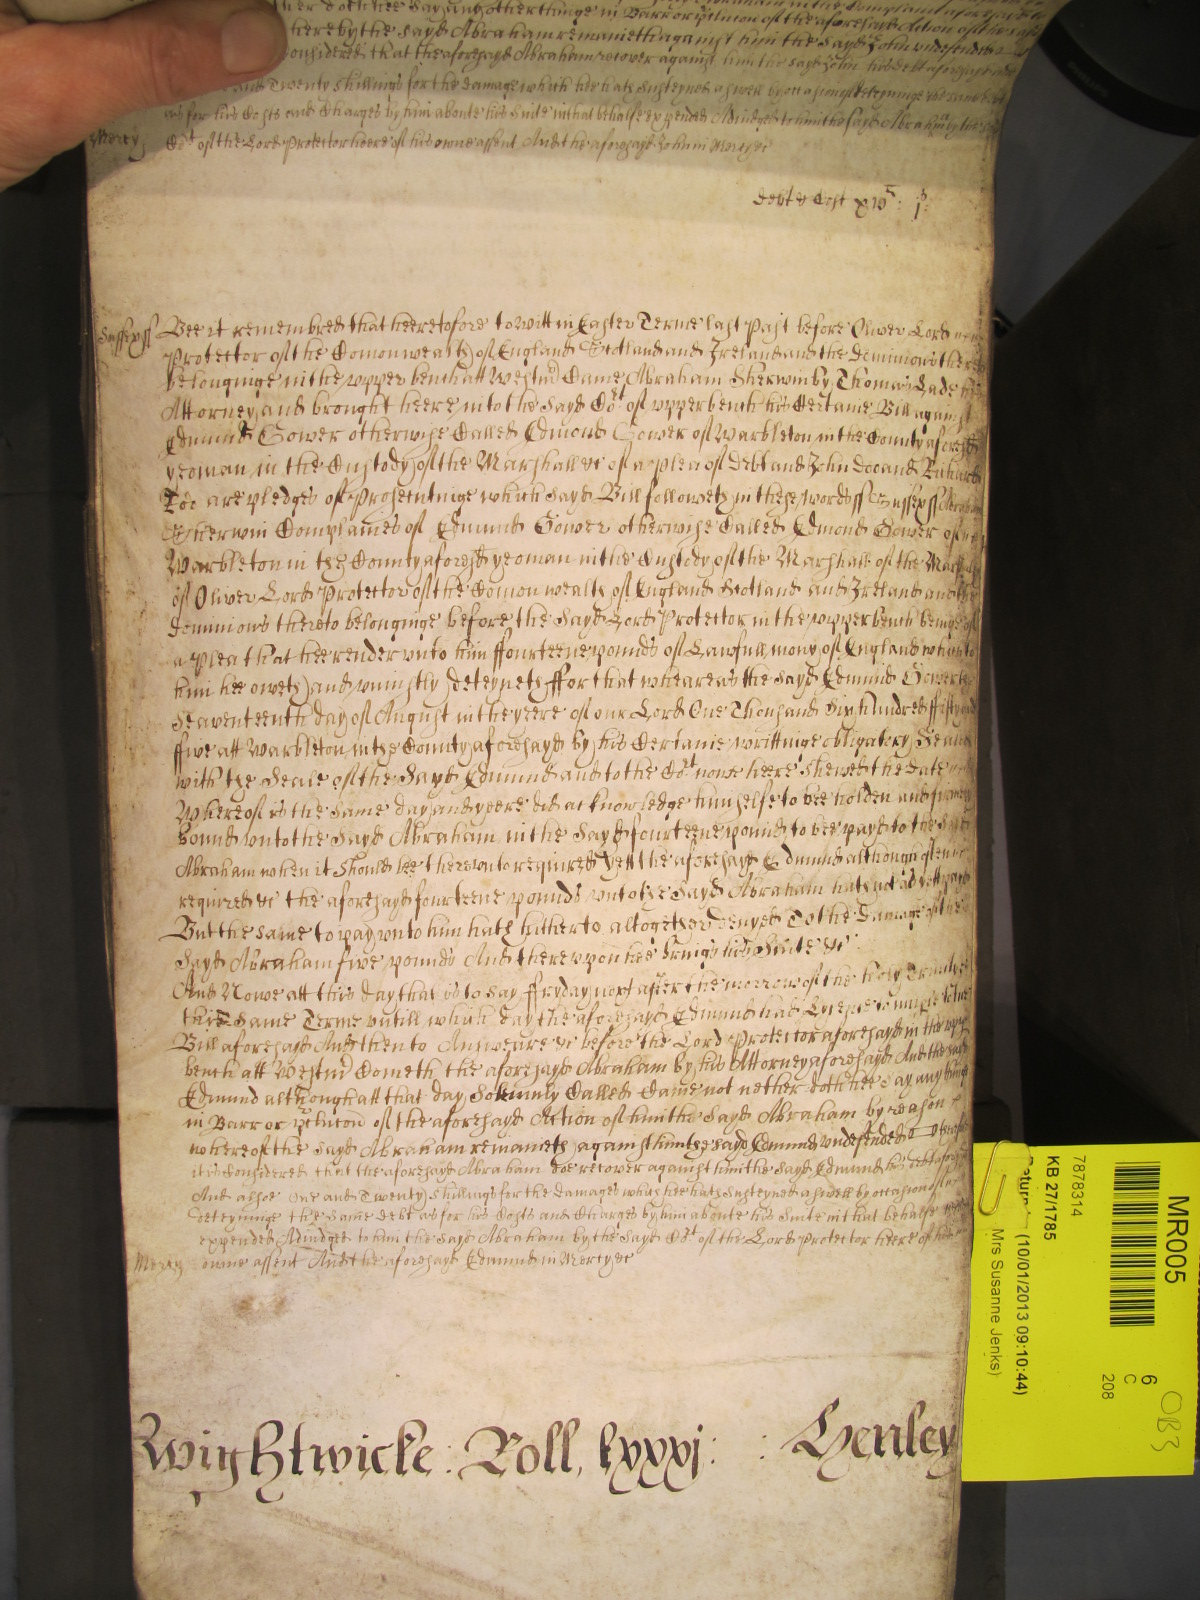 doth hee say any other thinge in Barr or of the aforesayd Action of
whereby the sayd Abraham remanieth against him the sayd John undefended
considered that the aforesayd Abraham recover against him the sayd John his debt aforesayd
and Twenty shillings for the damage which hee hath susteyned aswell by occasion of deteyninge the same debt
as for his Costs and Charges by him aboute his suite in that behalfe expended Adiudged to him the sayd Abraham by the
Mercy Cort of the Lord Protector heere of his owne assent And the aforesayd John in Mercy &c
debt & Cost
Sussex ss Bee it remembred that heeretofore to witt in Easter Terme last Past before Oliver Lord
Protector of the Comonwealth of England Scotland and Ireland and the dominions thereto
belonginge in the upper bench att Westmr Came Abraham Sherwin by Thomas Lade his
Attorney and brought heere into the sayd Cort of upper bench his Certaine Bill against
Edmund Gower otherwise Called Edmond Gower of Warbleton in the County aforesayd
yeoman in the Custody of the Marshall &c of a plea of debt and John doo and Richard
Roo are pledges of Prosecutinge which sayd Bill followeth in these words ss Sussex ss Abraham
Sherwin Complaines of Edmund Gower otherwise Called Edmond Gower of
Warbleton in the County aforesd yeoman in the Custody of the Marshall of the
of Oliver Lord Protector of the Comonwealth of England Scotland and Ireland and the
dominions thereto belonginge before the sayd Lord Protector in the upper bench beinge of
a plea that hee render unto him ffourteene pounds of Lawfull mony of England which to
him hee oweth and uniustly deteyneth ffor that wheareas the sayd Edmund Gower the
Seaventeenth day of August in the yeere of our Lord One Thousand Six Hundred ffifty and
ffive att Warbleton in the County aforesayd by his Certaine writtinge obligatory Sealed
with the Seale of the sayd Edmund and to the Cort nowe heere shewed the date
Whereof is the same day and yeere did acknowledge himselfe to bee holden and firmely
bound unto the sayd Abraham in the sayd fourteene pounds to bee payd to the sayd
Abraham when it should bee thereunto required yett the aforesayd Edmund although often
required &c the aforesayd fourteene pounds unto the sayd Abraham hath not as yett payd
But the same to pay unto him hath hitherto altogether denyed To the damage of the
sayd Abraham five pounds And thereupon hee brings his Suite &c
And Nowe att this day that is to say ffryday next after the morrow of the holy Trinity
this same Terme untill which day the aforesayd Edmund had Lycense to imparle to the
Bill aforesayd And then to Answeare &c before the Lord Protector aforesayd in the upper
bench att Westmr Cometh the aforesayd Abraham by his Attorney aforesayd And the sayd
Edmund although att that day Solemnly Called Came not nether doth hee say any thinge
in Barr or of the aforesayd Action of him the sayd Abraham by reason
whereof the sayd Abraham remaneth against him the sayd Edmund undefended Therefore
it is Considered that the aforesayd Abraham doe recover against him the sayd Edmund his debt aforesayd
And alsoe One and Twenty shillings for the damages which hee hath susteyned aswell by occasion of
deteyninge the same debt as for his Costs and Charges by him aboute his Suite in that behalfe
expended Adiudged to him the sayd Abraham by the sayd Cort of the Lord Protector heere of his
Mercy owne assent And the aforesayd Edmund in Mercy &c
Wightwicke : Roll lxxxj : : Henley
MR005
6
C
208
OB3
7878314
KB 27/1785
Return (10/01/2013 09:10:44)
Mrs Susanne Jenks)